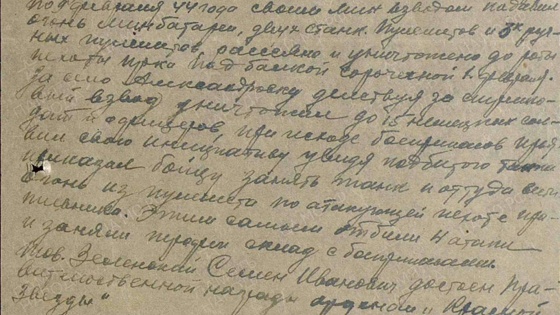 по февраля 44 года своим мин взводом подавил
огонь минбатареи, двух станк. пулеметов и 3х руч-
ных пулеметов, рассеяно и уничтожено до роты
пехоты пр-ка под балкой Сорочиной 1 февраля
за село Александровку действуя за стрелко-
вый взвод уничтожил до 15 немецких сол-
дат и офицеров, при исходе боеприпасов прия-
вил свою инициативу увидя подбитого танка
приказал бойцу занять танк и оттуда вел
огонь из пулемета по атакующей пехоте про-
тивника. Этим самым отбили 4 атаки
и заняли трофеи склад с боеприпасами.
Тов. Зеленский Семен Иванович достоен пра-
вительственной награды орденом „Красной
Звезды"